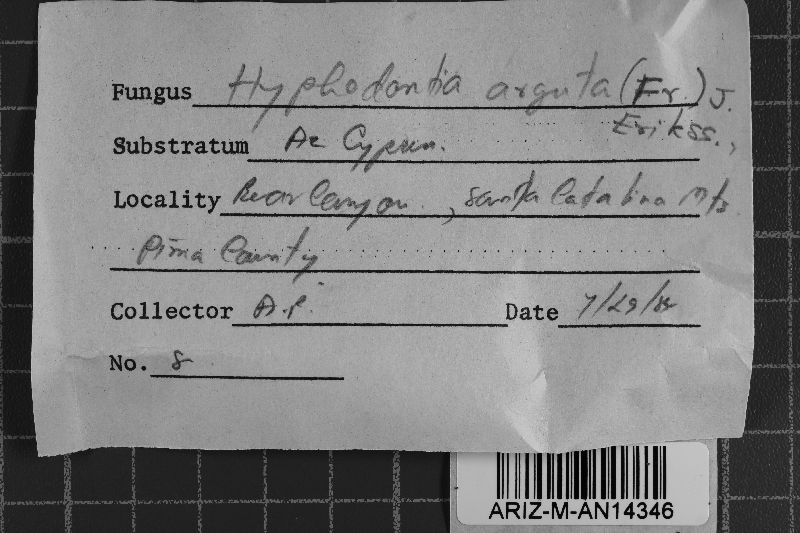 Fungus Hyphodontia arguta (Fr.) J.
Erikss.,
Substratum Az Cypress.
Locality Bear Canyon, Santa Catalina Mts
Pima County
Collector A.P.
Date 7/29/
No. 8
ARIZ-M-AN14346